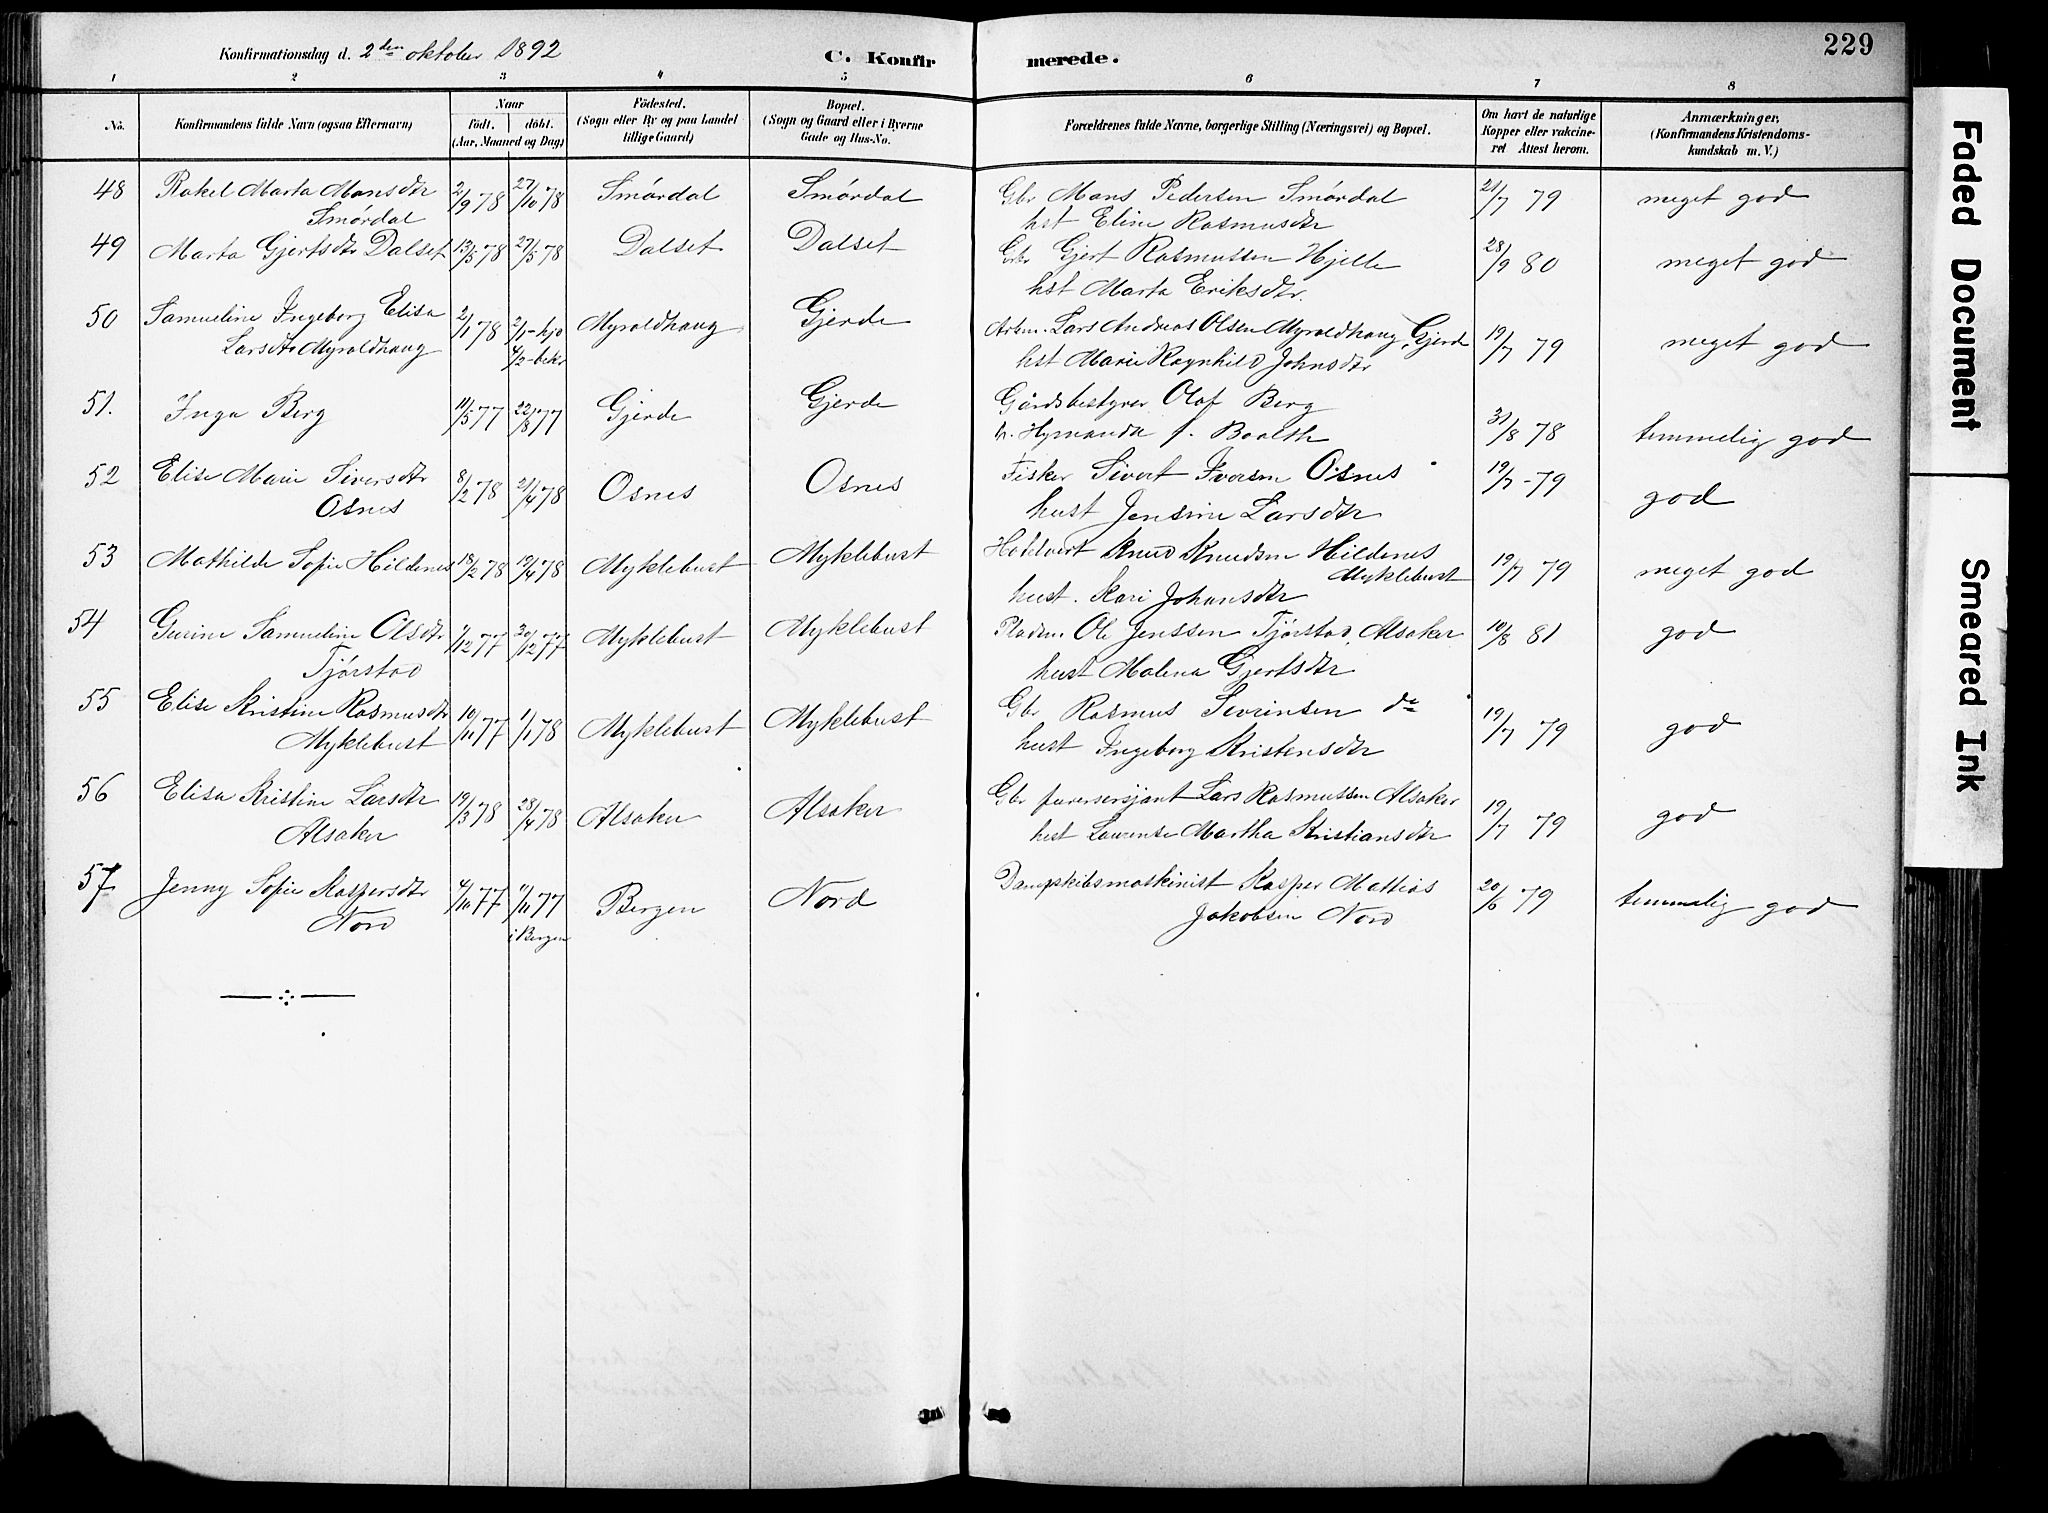 Konfirmationsdag d. 2den oktober 1892 C. Konfir merede. 229
1 2 3 4 5 6 7 8
No.
Konfirmandens fulde Navn (ogsaa Efternavn)
Naar
födt. döbt.
(Aar, Maaned og Dag)
Födested.
(Sogn eller By og paa Landet
tillige Gaard)
Bopæl.
(Sogn og Gaard eller i Byerne
Gade og Hus-No.
Forældrenes fulde Navne, borgerlige Stilling (Næringsvei) og Bopæl.
Om havt de naturlige
Kopper eller vakcine-
ret Attest herom.
Anmærkninger,
(Konfirmandens Kristendoms-
kundskab m. V.)
48 Rakel Marta Mansdtr 2/9 78 27/10 78 Smørdal Smørdal Gbr Mans Pedersen Smørdal 21/7 79 meget god
Smørdal hst Eline Rasmusdtr
49 Marta Gjertsdtr Dalset 13/5 78 27/5 78 Dalset Dalset Gbr Gjert Rasmussen Hjelle 28/9 80 meget god
hst Marta Eriksdtr.
50 Samueline Ingeborg Elisa 2/1 78 2/1-hjd Myroldhaug Gjerde Arbm. Lars Andreas Olsen Myroldhaug, Gjerde 19/7 79 meget god
Larsdtr Myroldhaug 4/2-bekr hst Marie Ragnhild Johnsdtr
51. Inga Berg 11/5 77 22/8 77 Gjerde Gjerde Gårdsbestyrer Olaf Berg
h. Hymanda f. Baalth 31/8 78 temmelig god
52 Elise Marie Siversdtr 8/2 78 21/4 78 Osnes Osnes Fisker Sivert Iversen Osnes 19/7-79 god
Osnes hust Jensine Larsdtr
53 Mathilde Sofie Hildenes 18/2 78 19/4 78 Myklebust Myklebust Knud Knudsen Hildenes
Myklebust 19/7 79 meget god
hust. Kari Johansdtr
54 Gurine Samueline Olsdtr 7/12 77 30/12 77 Myklebust Myklebust Pladsm. Ole Jenssen Tjørstad, Alsaker 10/8 81 god
Tjørstad hust Malena Gjertsdtr
55 Elise Kristine Rasmusdtr 10/11 77 1/1 78 Myklebust Myklebust Gbr Rasmus Sevrinsen do 19/7 79 god
Myklebust hust Ingeborg Kristensdtr
56 Elisa Kristine Larsdtr 19/3 78 28/4 78 Alsaker Alsaker Gbr furersersjant Lars Rasmussen Alsaker 19/7 79 god
Alsaker hust Laurense Martha Kristiansdtr
57 Jenny Sofie Kaspersdtr 4/10 77 11/11 77 Bergen Nord Dampskibsmaskinist Kasper Mathias 20/6 79 temmelig god
Nord i Bergen Jakobsen Nord
Faded Document
Smeared Ink